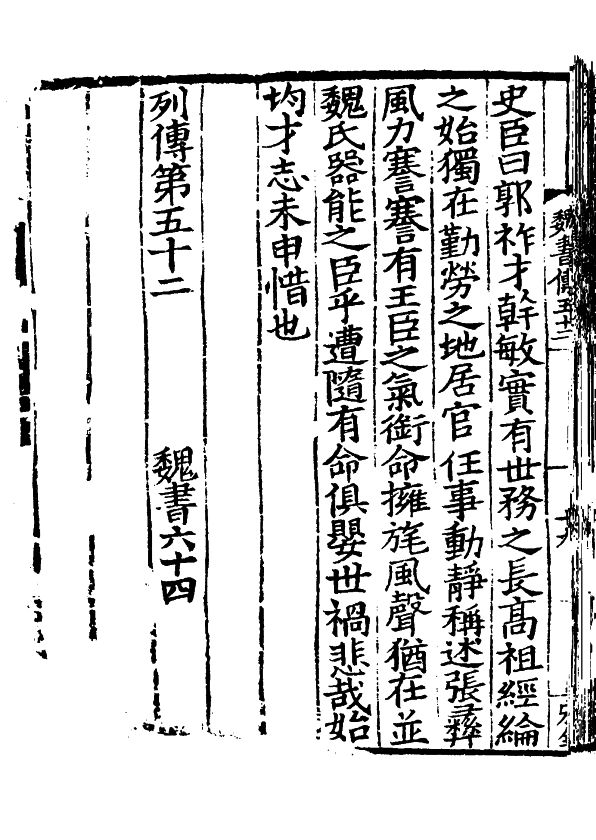 魏書傳五十二
史臣曰郭祚才幹敏實有世務之長高祖經綸
之始獨在勤勞之地居官任事動靜稱述張彝
風力謇謇有王臣之氣銜命擁旄風聲猶在並
魏氏器能之臣乎遭隨有命俱嬰世禍悲哉始
均才志未申惜也
列傳第五十二
魏書六十四